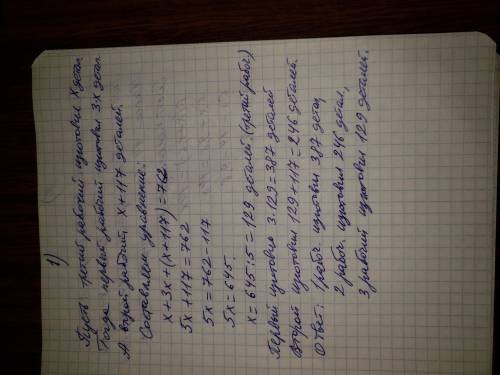 1)
Пусть третий рабочий изготовил x детал.
Тогда первый рабочий изготовил 3x детал.
А второй рабочий x+117 деталей.
Составляем уравнение:
x+3x+(x+117)=762
5x+117=762
5x=762-117
5x=645
x=645:5=129 деталей (третий рабоч.)
Первый изготовил 3·129=387 деталей
Второй изготовил 129+117=246 деталей.
Ответ: 1 рабоч. изготовил 387 детал,
2 рабоч. изготовил 246 детал,
3 рабочий изготовил 129 деталей.